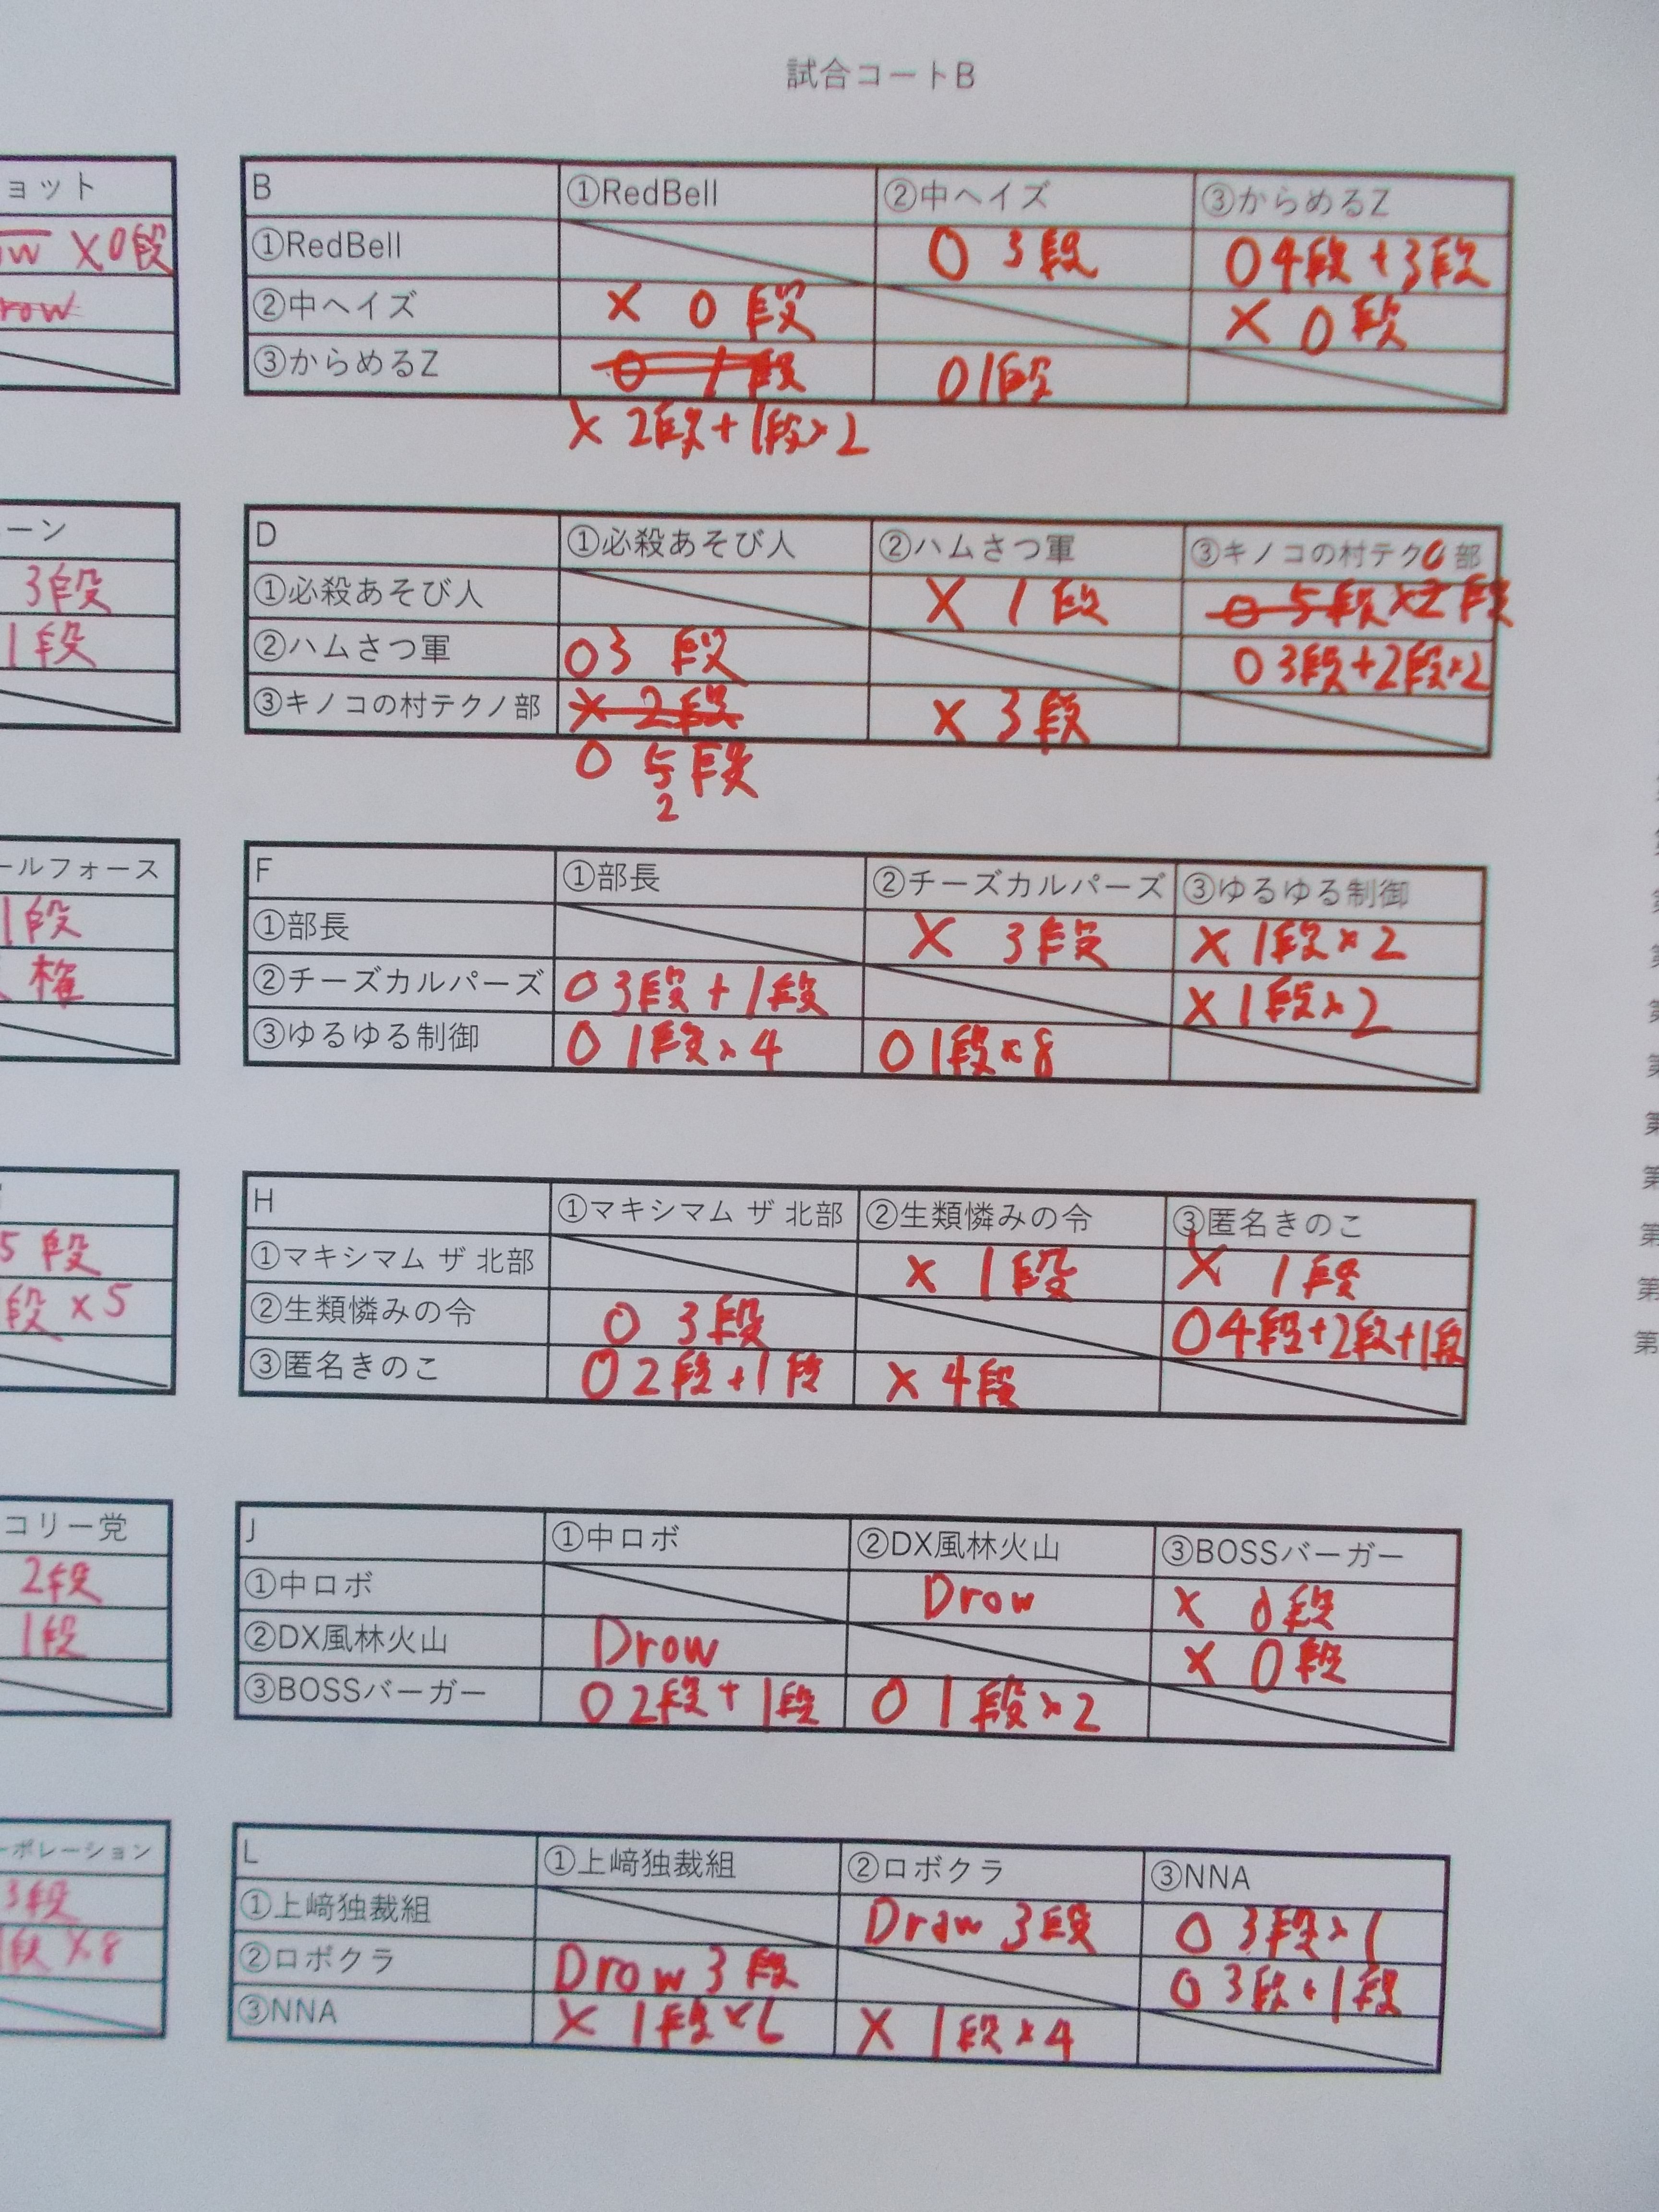 試合コートB
ョット
X0段
B ①RedBell ②中ヘイズ ③からめるZ
①RedBell O 3段 O4段+3段
②中ヘイズ × 0段 × 0段
③からめるZ O 1段 O1段
× 2段+1段×2
ーン
3段
1段
D ①必殺あそび人 ②ハムさつ軍 ③キノコの村テク 部
①必殺あそび人 × 1段 O 5段 ×2段
②ハムさつ軍 O3段 O 3段+2段×2
③キノコの村テクノ部 × 2段 × 3段
O 5段
2
ールフォース
1段
権
F ①部長 ②チーズカルパーズ ③ゆるゆる制御
①部長 × 3段 × 1段×2
②チーズカルパーズ O3段+1段 × 1段×2
③ゆるゆる制御 O 1段×4 O1段×8
5段
段×5
H ①マキシマム ザ 北部 ②生類憐みの令 ③匿名きのこ
①マキシマム ザ 北部 × 1段 × 1段
②生類憐みの令 O 3段 O4段+2段+1段
③匿名きのこ O2段+1段 × 4段
コリー党
2段
1段
J ①中ロボ ②DX風林火山 ③BOSSバーガー
①中ロボ Drow × 0段
②DX風林火山 Drow × 0段
③BOSSバーガー O2段+1段 O 1段×2
ーポレーション
3段
段×8
L ①上﨑独裁組 ②ロボクラ ③NNA
①上﨑独裁組 Draw 3段 O 3段×1
②ロボクラ Drow 3段 O 3段+1段
③NNA × 1段×6 × 1段×4
第
第
第
第
第
第
第